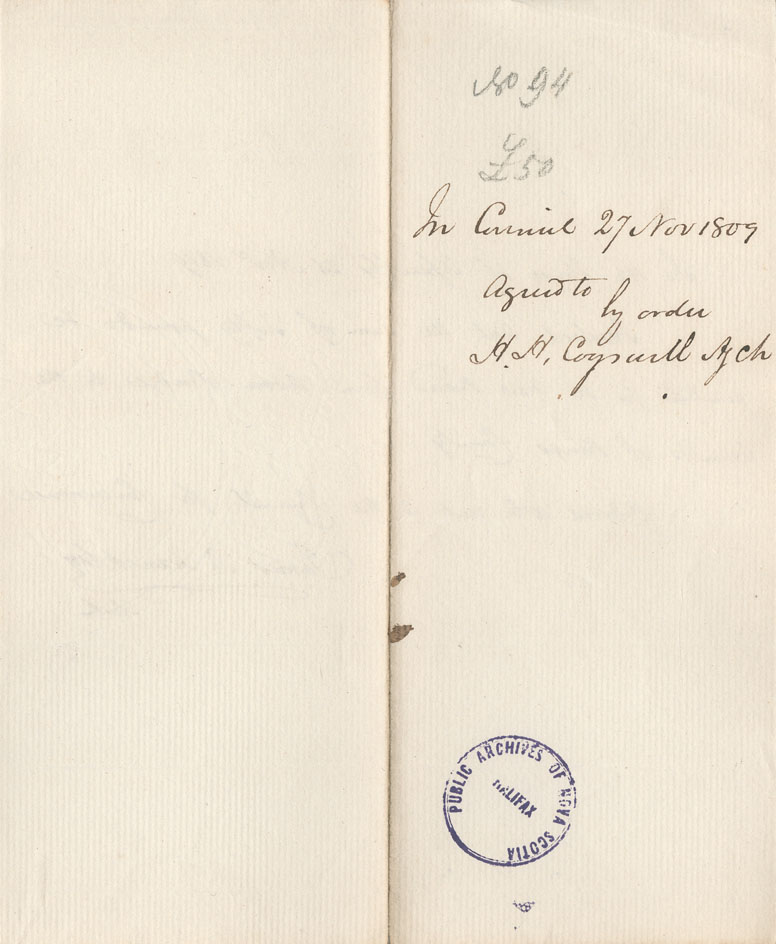 No 94
£50
In Council 27 Nov 1809
Agreed to
by order
H. H. Cogswell
PUBLIC ARCHIVES OF NOVA SCOTIA
HALIFAX